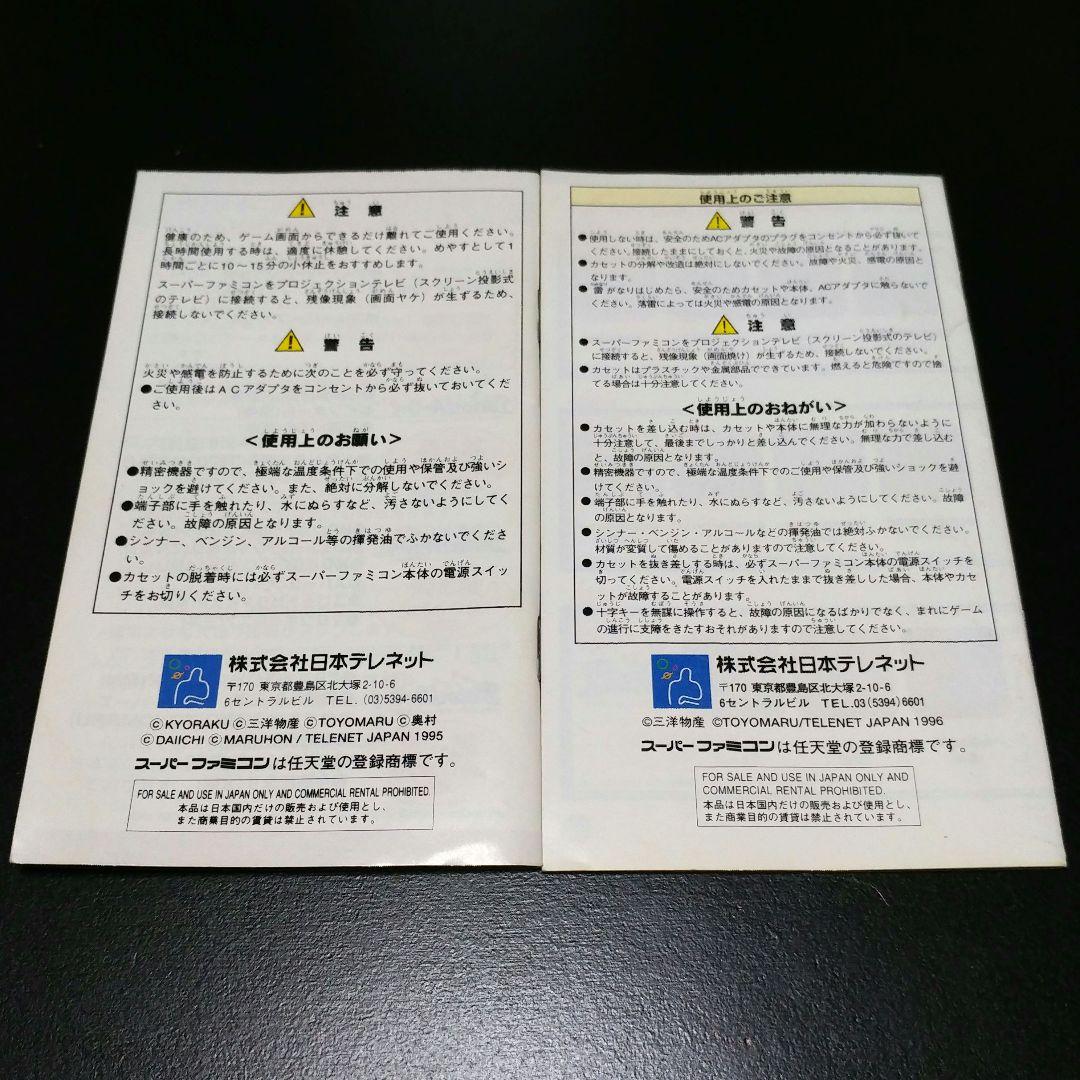 注意
健康のため、ゲーム画面からできるだけ離れてご使用ください。
長時間使用する時は、適度に休憩してください。めやすとして1
時間ごとに10~15分の小休止をおすすめします。
スーパーファミコンをプロジェクションテレビ(スクリーン投影式
のテレビ)に接続すると、残像現象(画面ヤケ)が生ずるため、
接続しないでください。
警告
火災や感電を防止するために次のことを必ず守ってください。
●ご使用後はACアダプタをコンセントから必ず抜いておいてくだ
さい。
<使用上のお願い>
●精密機器ですので、極端な温度条件下での使用や保管及び強いシ
ョックを避けてください。また、絶対に分解しないでください。
●端子部に手を触れたり、水にぬらすなど、汚さないようにしてく
ださい。故障の原因となります。
●シンナー、ベンジン、アルコール等の揮発油でふかないでくださ
い。
●カセットの脱着時には必ずスーパーファミコン本体の電源スイッ
チをお切りください。
株式会社日本テレネット
〒170 東京都豊島区北大塚2-10-6
6セントラルビル TEL. (03)5394-6601
©KYORAKU ©三洋物産 ©TOYOMARU ©奥村
©DAIICHI ©MARUHON / TELENET JAPAN 1995
スーパーファミコンは任天堂の登録商標です。
FOR SALE AND USE IN JAPAN ONLY AND COMMERCIAL RENTAL PROHIBITED.
本品は日本国内だけの販売および使用とし、
また商業目的の賃貸は禁止されています。
使用上のご注意
警告
●使用しない時は、安全のためACアダプタのプラグをコンセントから必ず抜いて
ください。接続したままにしておくと、火災や故障の原因となることがあります。
●カセットの分解や改造は絶対にしないでください。故障や火災、感電の原因と
なります。
●雷がなりはじめたら、安全のためカセットや本体、ACアダプタに触らないで
ください。落雷によっては火災や感電の原因となります。
注意
●スーパーファミコンをプロジェクションテレビ(スクリーン投影式のテレビ)
に接続すると、残像現象(画面焼け)が生ずるため、接続しないでください。
●カセットはプラスチックや金属部品でできています。燃えると危険ですので捨
てる場合は十分注意してください。
<使用上のおねがい>
●カセットを差し込む時は、カセットや本体に無理な力が加わらないように
十分注意して、最後までしっかりと差し込んでください。無理な力で差し込む
と、故障の原因となります。
●精密機器ですので、極端な温度条件下でのご使用や保管及び強いショックを避
けてください。
●端子部に手を触れたり、水にぬらすなど、汚さないようにしてください。故障
の原因となります。
●シンナー・ベンジン・アルコールなどの揮発油では絶対ふかないでください。
材質が変質して傷めることがありますので注意してください。
●カセットを抜き差しする時は、必ずスーパーファミコン本体の電源スイッチを
切ってください。電源スイッチを入れたままで抜き差しした場合、本体やカセ
ットが故障することがあります。
●十字キーを無謀に操作すると、故障の原因になるばかりでなく、まれにゲーム
の進行に支障をきたすおそれがありますので注意してください。
株式会社日本テレネット
〒170 東京都豊島区北大塚2-10-6
6セントラルビル TEL.03(5394)6601
©三洋物産 ©TOYOMARU/TELENET JAPAN 1996
スーパーファミコンは任天堂の登録商標です。
FOR SALE AND USE IN JAPAN ONLY AND
COMMERCIAL RENTAL PROHIBITED.
本品は日本国内だけの販売および使用とし、
また商業目的の賃貸は禁止されています。